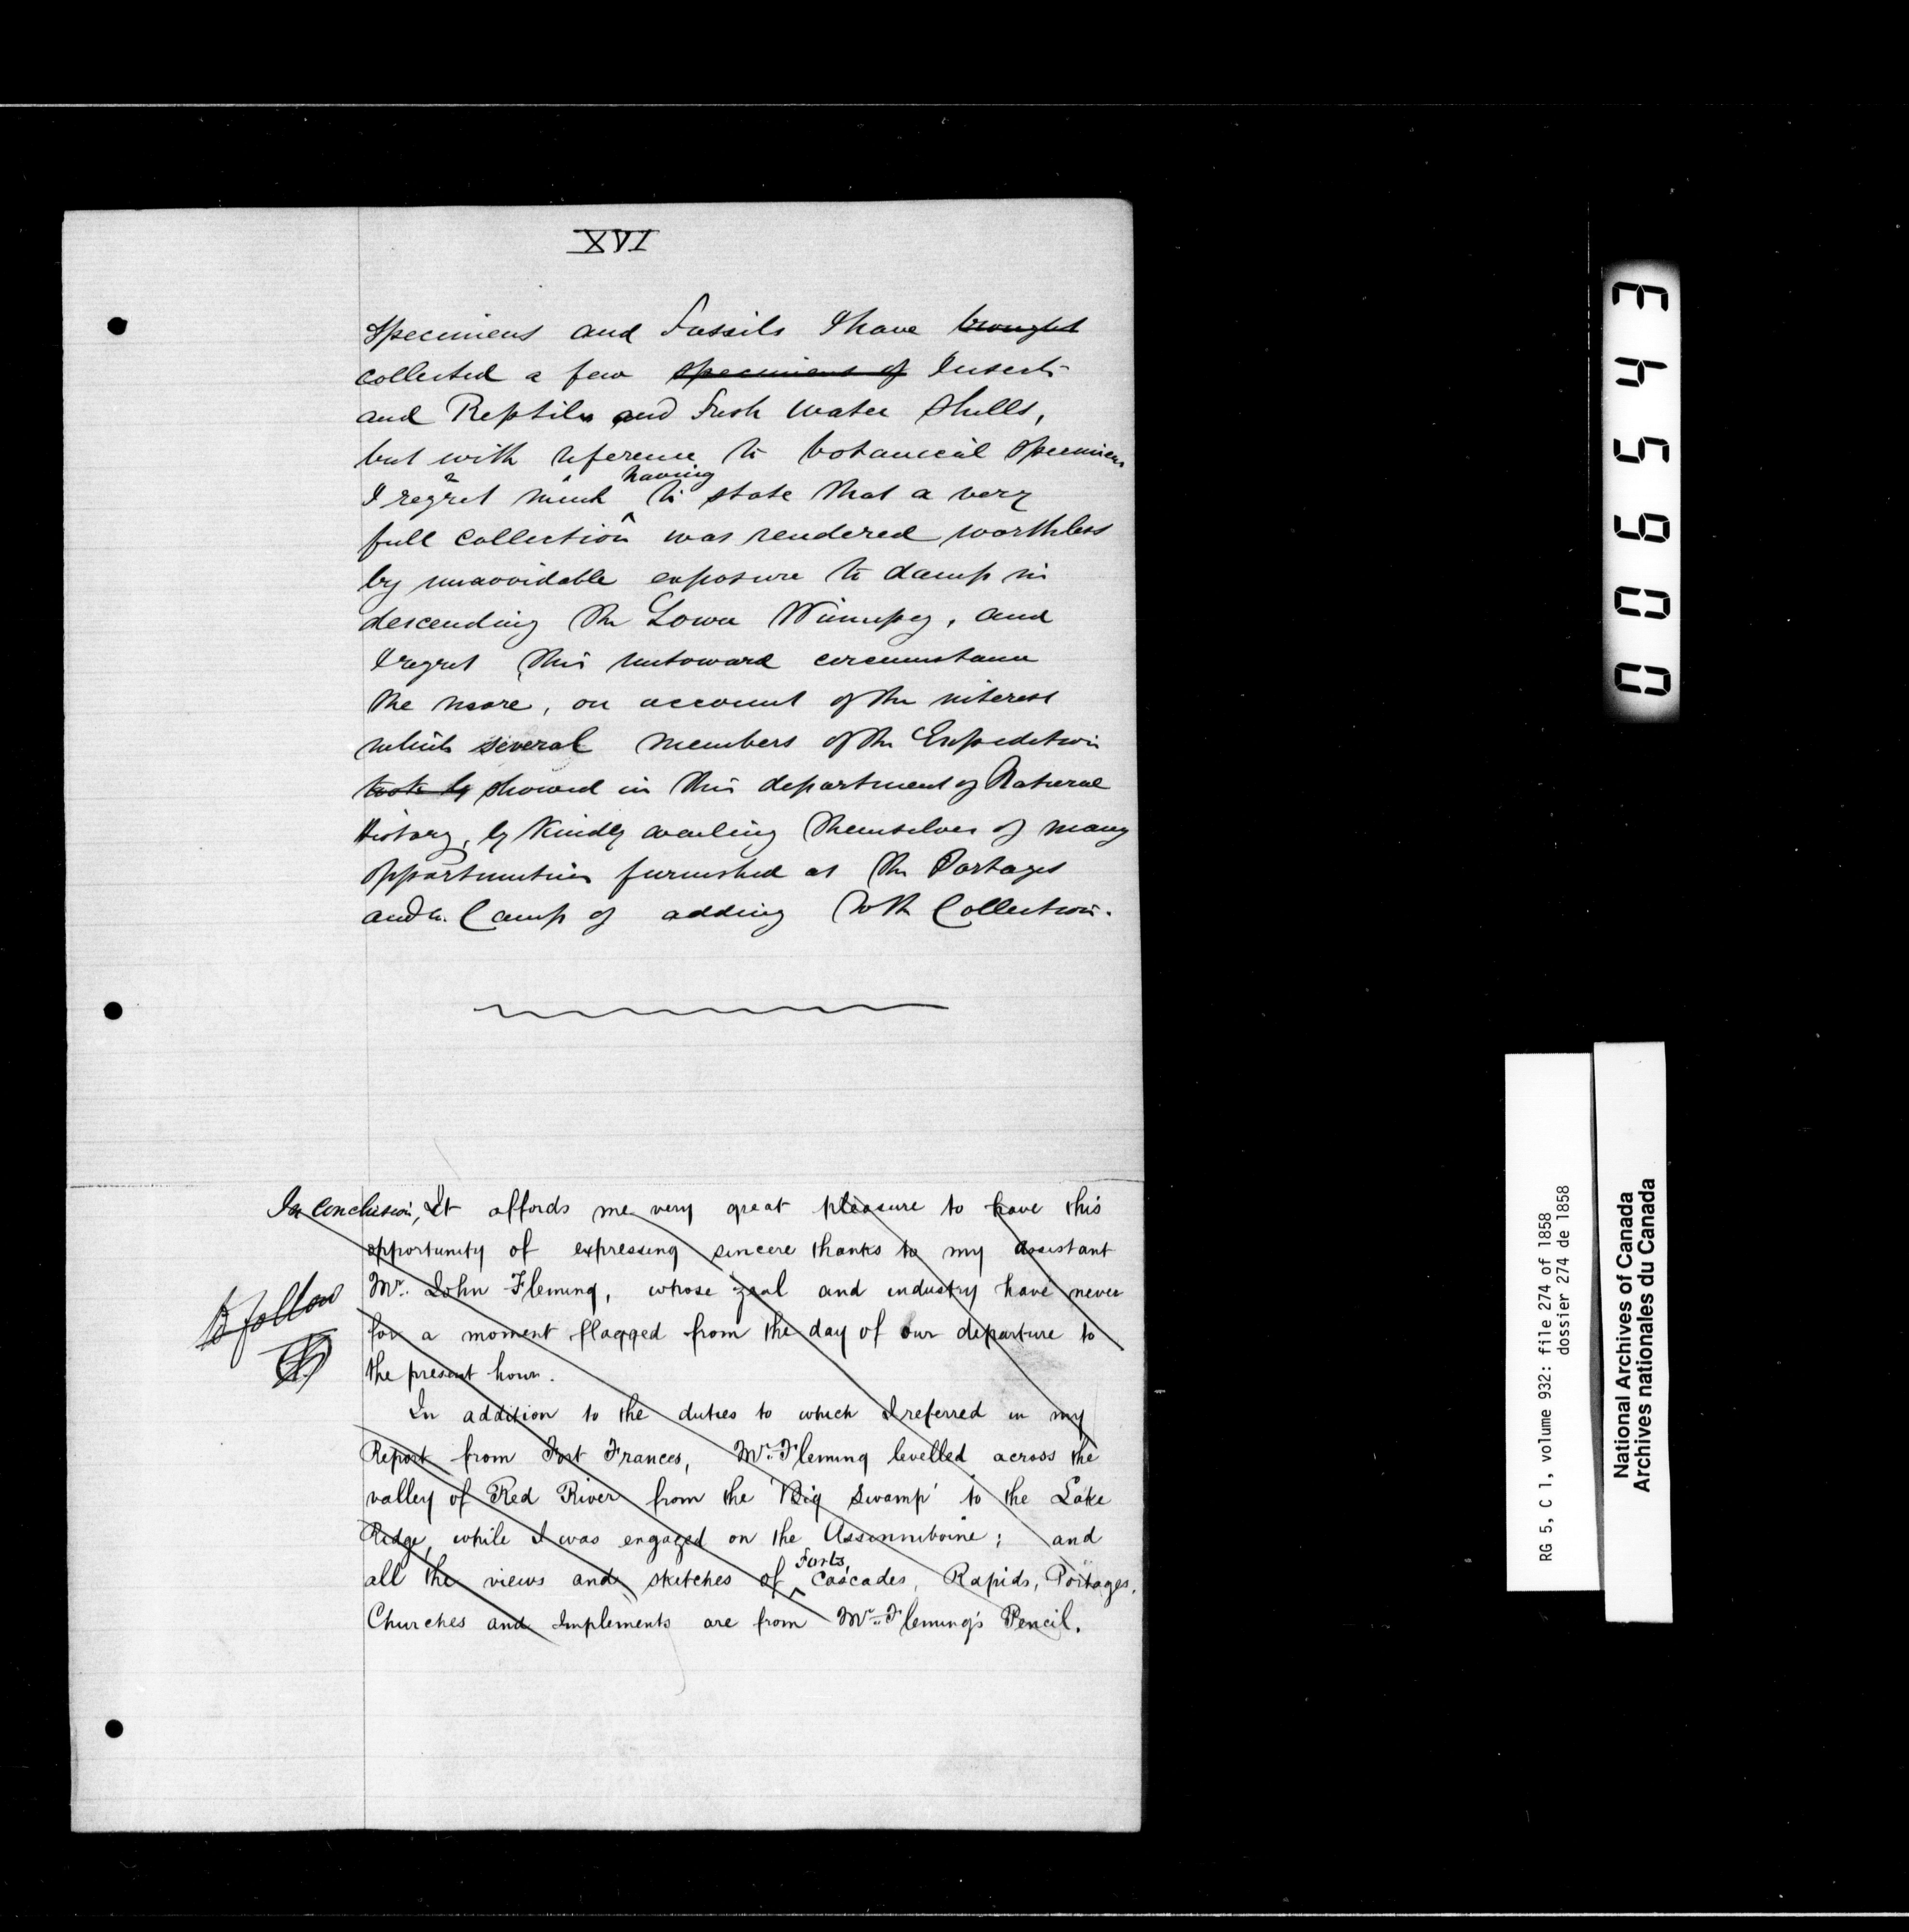 XVI
specimens and Fossils I have brought
collected a few specimens of Insects
and Reptiles and Fresh water shells,
but with reference to botanical specimens
having
I regret much to state that a very
full collection was rendered worthless
by unavoidable exposure to damp in
descending the Lower Winnipeg, and
I regret this untoward circumstance
the more, on account of the interest
which several members of the Expedition
took by showed in this department of Natural
History, by kindly availing themselves of many
opportunities furnished at the Portages
and in Camp of adding to the Collection.
In Conclusion, It affords me very great pleasure to have this
opportunity of expressing sincere thanks to my assistant
Mr. John Fleming, whose zeal and industry have never
for a moment flagged from the day of our departure to
the present hour.
To follow
In addition to the duties to which I referred in my
Report from Fort Frances, Mr. Fleming levelled across the
valley of Red River from the 'Big Swamp' to the Lake
Ridge, while I was engaged on the Assinniboine; and
Forts,
all the views and sketches of Cascades, Rapids, Portages,
Churches and Implements are from Mr. Fleming's Pencil.
006543
RG 5, C 1, volume 932: file 274 of 1858
dossier 274 de 1858
National Archives of Canada
Archives nationales du Canada